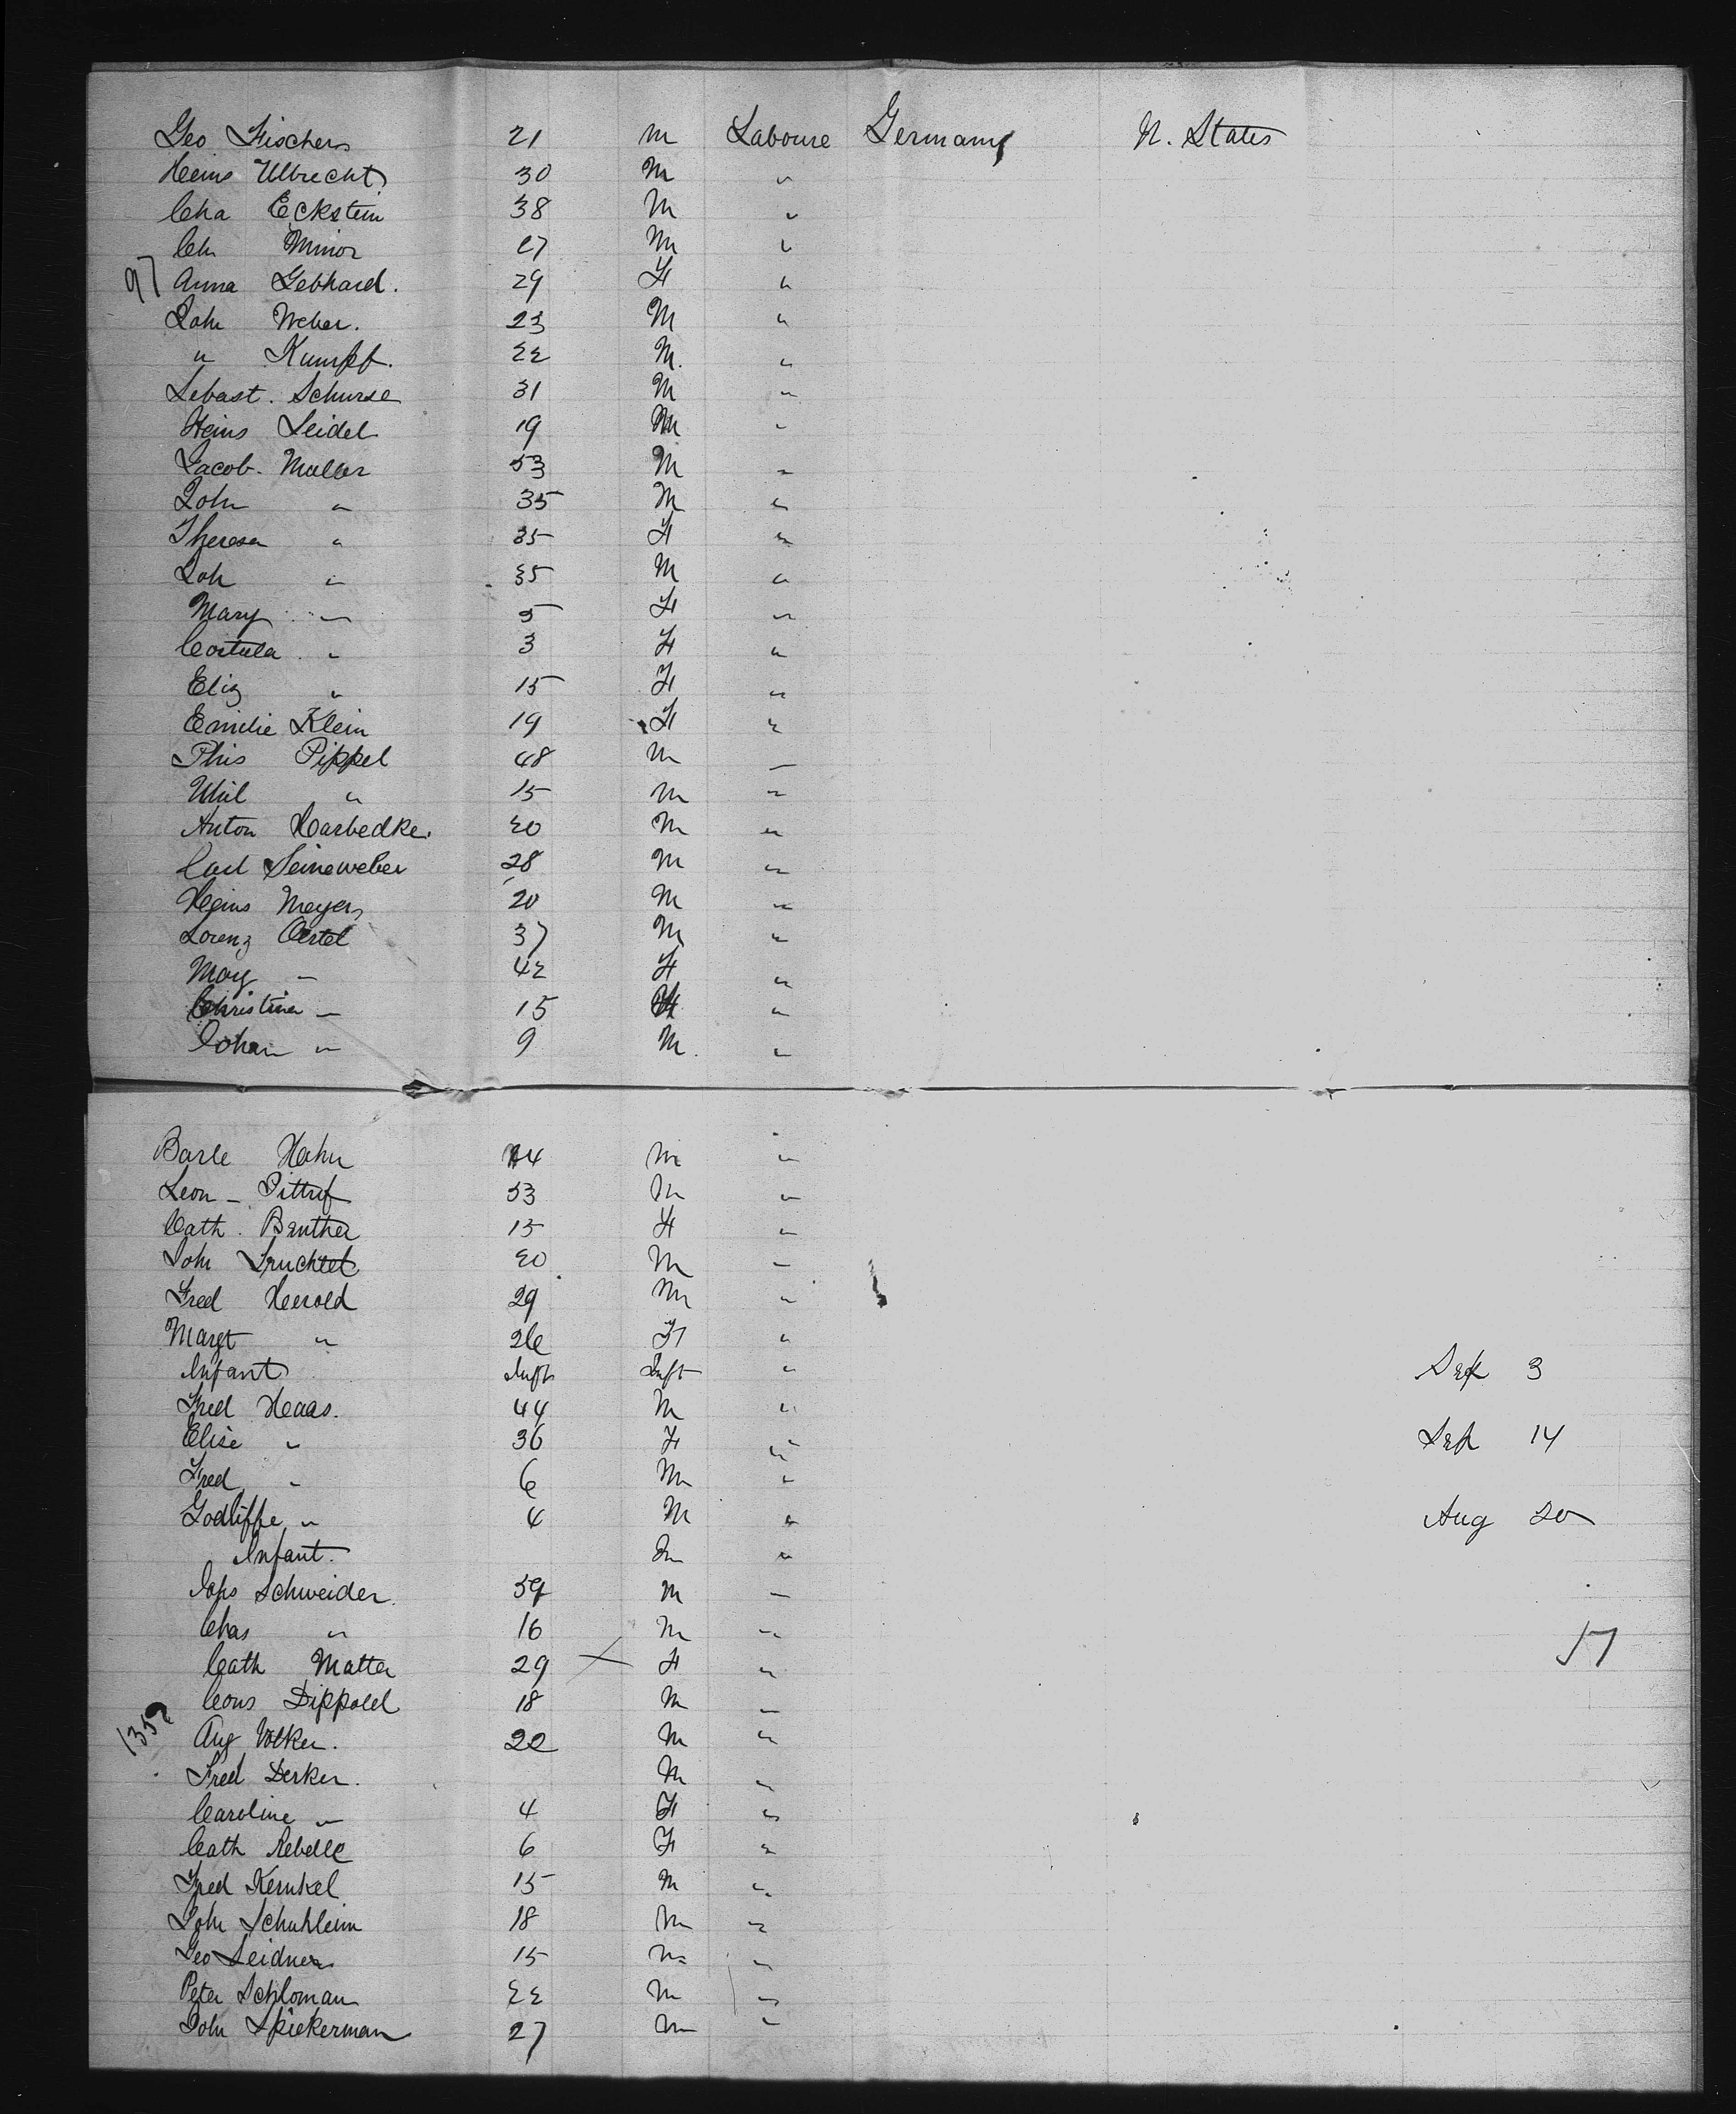 Geo Fischer 21 M Laboure Germany U. States
Heins Ulbrecht 30 M "
Cha Eckstein 38 M "
Ch Minor 27 M "
97 Anna Gebhard. 29 F "
Joh Weber. 23 M "
" Kumpf. 22 M. "
Sebast. Schurse 31 M "
Heins Seidel 19 M "
Jacob. Muller 53 M "
John " 35 M "
Theresa " 35 F "
Joh " 35 M "
Mary " 5 F "
" 3 F "
Eliz " 15 F "
Emilie Klein 19 F "
Phis Pippel 48 M "
Whil " 15 M "
Anton Harbedke. 20 M "
Carl Seineweber 28 M "
Heins Meyer 20 M "
Lorenz Oertel 37 M "
Mary " 42 F "
Christina " 15 F "
Johan " 9 M. "
Barle Hahn 44 M "
Leon - Dittrif 53 M "
Cath. Benther 15 F "
Joh Fruchtel 20 M "
Fred Herold 29 M "
Margt " 26 F "
Infant Inft Inft " Sep 3
Fred Haas. 44 M "
Elise " 36 F " Sep 14
Fred " 6 M "
Godliffe " 4 M " Aug 20
Infant. In "
Schweider. 59 M "
Chas " 16 M " 17
Cath Matter 29 X F "
Cons Dippold 18 M "
1352 Aug Volker. 22 M "
Fred Derker. M "
Caroline " 4 F "
Cath Rebelle 6 F "
Fred Kernkel 15 M "
Joh Schuhleim 18 M "
Geo Leidner 15 M "
Peter Schloman 22 M "
John Spiekerman 27 M "